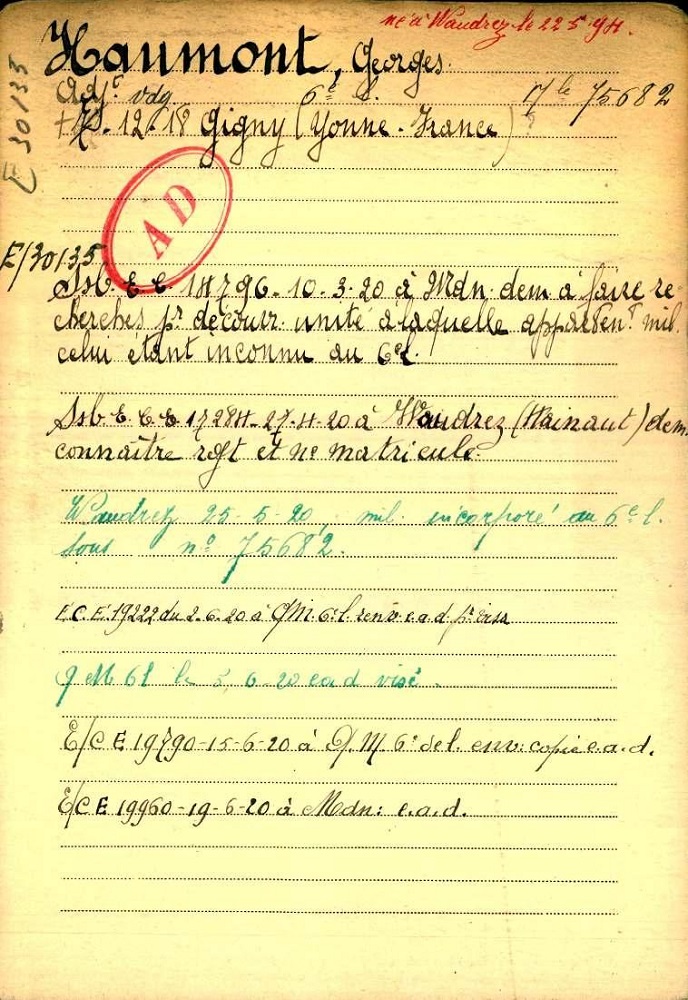 né à Waudrez le 22 5 94.
Haumont, Georges.
E 30135
Adjt vdg 6e L. Mle 75682
+ 7-12-18 Gigny (Yonne-France)
AD
E/30135
Ssb. E C E 14796. 10-3-20 à Mdn. dem à faire re-
cherches pr découvr. unité à laquelle appartent mil.
celui étant inconnu au 6eL.
Ssb. E C E 17284-27-4-20 à Waudrez (Hainaut) dem.
connaître regt et no matricule.
Waudrez 25-5-20, mil. incorporé au 6e l.
sous no 75682.
E.C.E. 19222 du 2-6-20 à QM. 6e l. renv. e.a.d. pr visa
Q M 6l le 5, 6-20 ead visé.
E/C E 19790-15-6-20 à Q.M. 6e de l. env. copie e.a.d.
E/C E 19960-19-6-20 à Mdn: e.a.d.